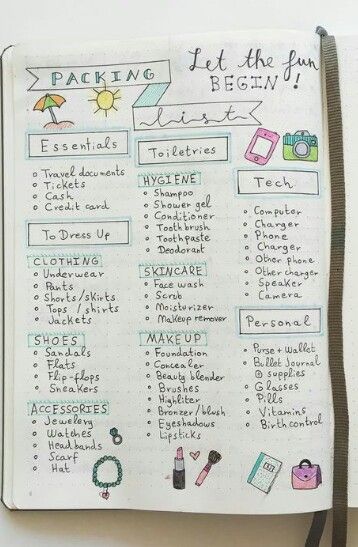 PACKING
list
Let the fun
BEGIN!
Essentials
Travel documents
Tickets
Cash
Credit card
To Dress Up
CLOTHING
Underwear
Pants
Shorts/skirts
Tops / shirts
Jackets
SHOES
Sandals
Flats
Flip-flops
Sneakers
ACCESSORIES
Jewelery
Watches
Headbands
Scarf
Hat
Toiletries
HYGIENE
Shampoo
Shower gel
Conditioner
Toothbrush
Toothpaste
Deodorant
SKINCARE
Face wash
Scrub
Moisturizer
Makeup remover
MAKEUP
Foundation
Concealer
Beauty blender
Brushes
Highliter
Bronzer/blush
Eyeshadows
Lipsticks
Tech
Computer
Charger
Phone
Charger
Other phone
Other charger
Speaker
Camera
Personal
Purse + Wallet
Bullet Journal
+ supplies
Glasses
Pills
Vitamins
Birth control